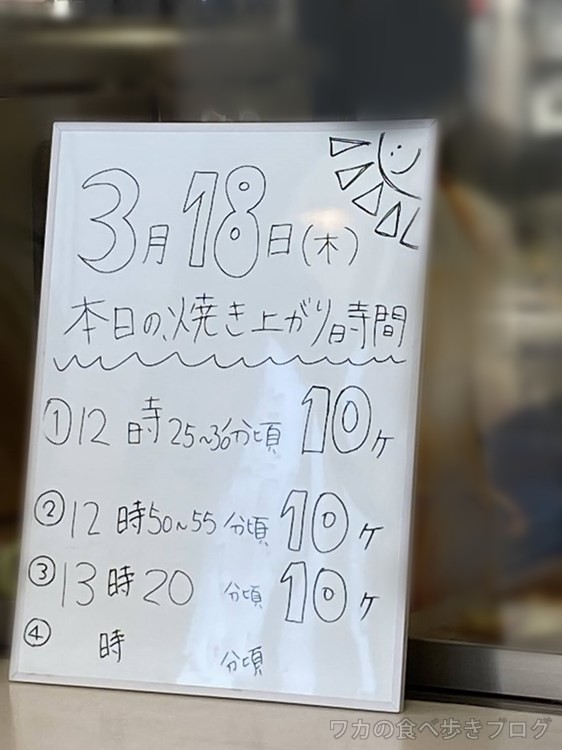 3月18日(木)
本日の焼き上がり時間
①12時25~30分頃 10ヶ
②12時50~55分頃 10ヶ
③13時20分頃 10ヶ
④ 時 分頃
ワカの食べ歩きブログ